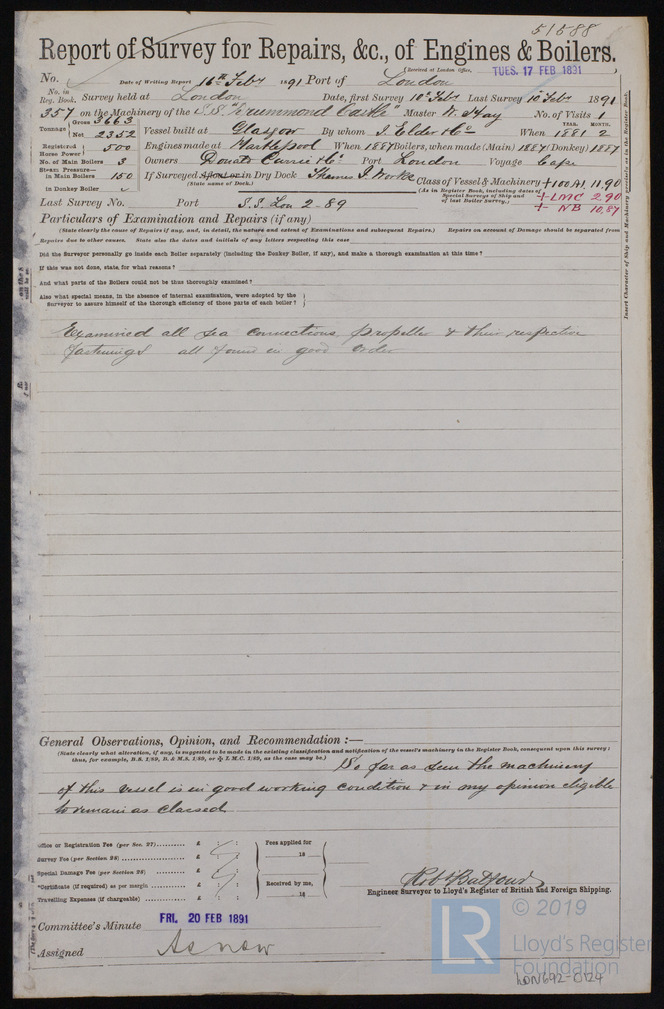 51588
Report of Survey for Repairs, &c., of Engines & Boilers.
(Received at London Office, TUES. 17 FEB 1891)
No. Date of Writing Report 16th Feby 1891 Port of London
No. in Reg. Book. Survey held at London Date, first Survey 10th Feby Last Survey 10 Feby 1891
357 on the Machinery of the S.S. "Drummond Castle" Master W. Hay No. of Visits 1
Tonnage Gross 3663 Net 2352 Vessel built at Glasgow By whom J. Elder & Co When 1881 2
YEAR. MONTH.
Registered Horse Power 500 Engines made at Hartlepool When 1887 Boilers, when made (Main) 1887 (Donkey) 1887
No. of Main Boilers 3 Owners Donald Currie & Co. Port London Voyage Cape
Steam Pressure— in Main Boilers 150 If Surveyed Afloat or in Dry Dock Thames I. Works Class of Vessel & Machinery +100.A1. 11.90
(State name of Dock.) (As in Register Book, including dates of Special Surveys of Ship and of last Boiler Survey.) +LMC 2.90
in Donkey Boiler + NB 10,87
Last Survey No. Port S.S. Lon 2-89
Particulars of Examination and Repairs (if any)
(State clearly the cause of Repairs if any, and, in detail, the nature and extent of Examinations and subsequent Repairs.) Repairs on account of Damage should be separated from
Repairs due to other causes. State also the dates and initials of any letters respecting this case
Did the Surveyor personally go inside each Boiler separately (including the Donkey Boiler, if any), and make a thorough examination at this time?
If this was not done, state, for what reasons?
And what parts of the Boilers could not be thus thoroughly examined?
Also what special means, in the absence of internal examination, were adopted by the
Surveyor to assure himself of the thorough efficiency of those parts of each boiler?
Insert Character of Ship and Machinery precisely as in the Register Book.
Examined all sea connections, propeller & their respective
fastenings all found in good order
General Observations, Opinion, and Recommendation :—
(State clearly what alteration, if any, is suggested to be made in the existing classification and notification of the vessel's machinery in the Register Book, consequent upon this survey;
thus, for example, B.S. 1/89, B. & M.S. 1/89, or ✠ L.M.C. 1/89, as the case may be.)
So far as seen the machinery
of this vessel is in good working condition & in my opinion eligible
to remain as classed
Office or Registration Fee (per Sec. 27) £ : : Fees applied for
Survey Fee (per Section 28) £ : : 18
Special Damage Fee (per Section 28) £ : :
*Certificate (if required) as per margin £ : : Received by me,
Travelling Expenses (if chargeable) £ : : 18
Robt Balfour
Engineer Surveyor to Lloyd's Register of British and Foreign Shipping.
Committee's Minute FRI. 20 FEB 1891
Assigned As now
© 2019
LR
Lloyd's Register
Foundation
LON692-0124